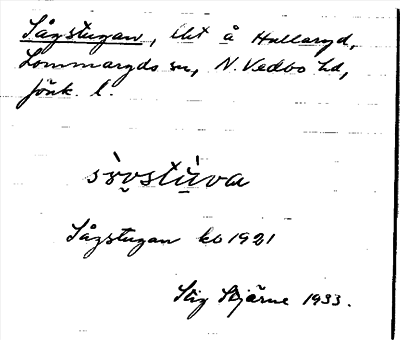 Sågstugan, lht å Hullaryd,
Lommaryds sn, N. Vedbo hd,
Jönk. l.
Sågstugan kb 1921
Stig Stjärne 1933.